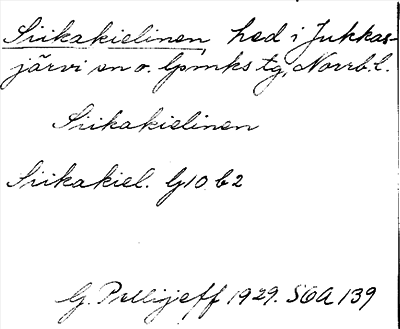 Siikakielinen, hed i Jukkas-
järvi sn o. lpmks tg, Norrb. l.
Siikakielinen
Siikakiel. G10 b2
G. Pellijeff 1929. SOA 139